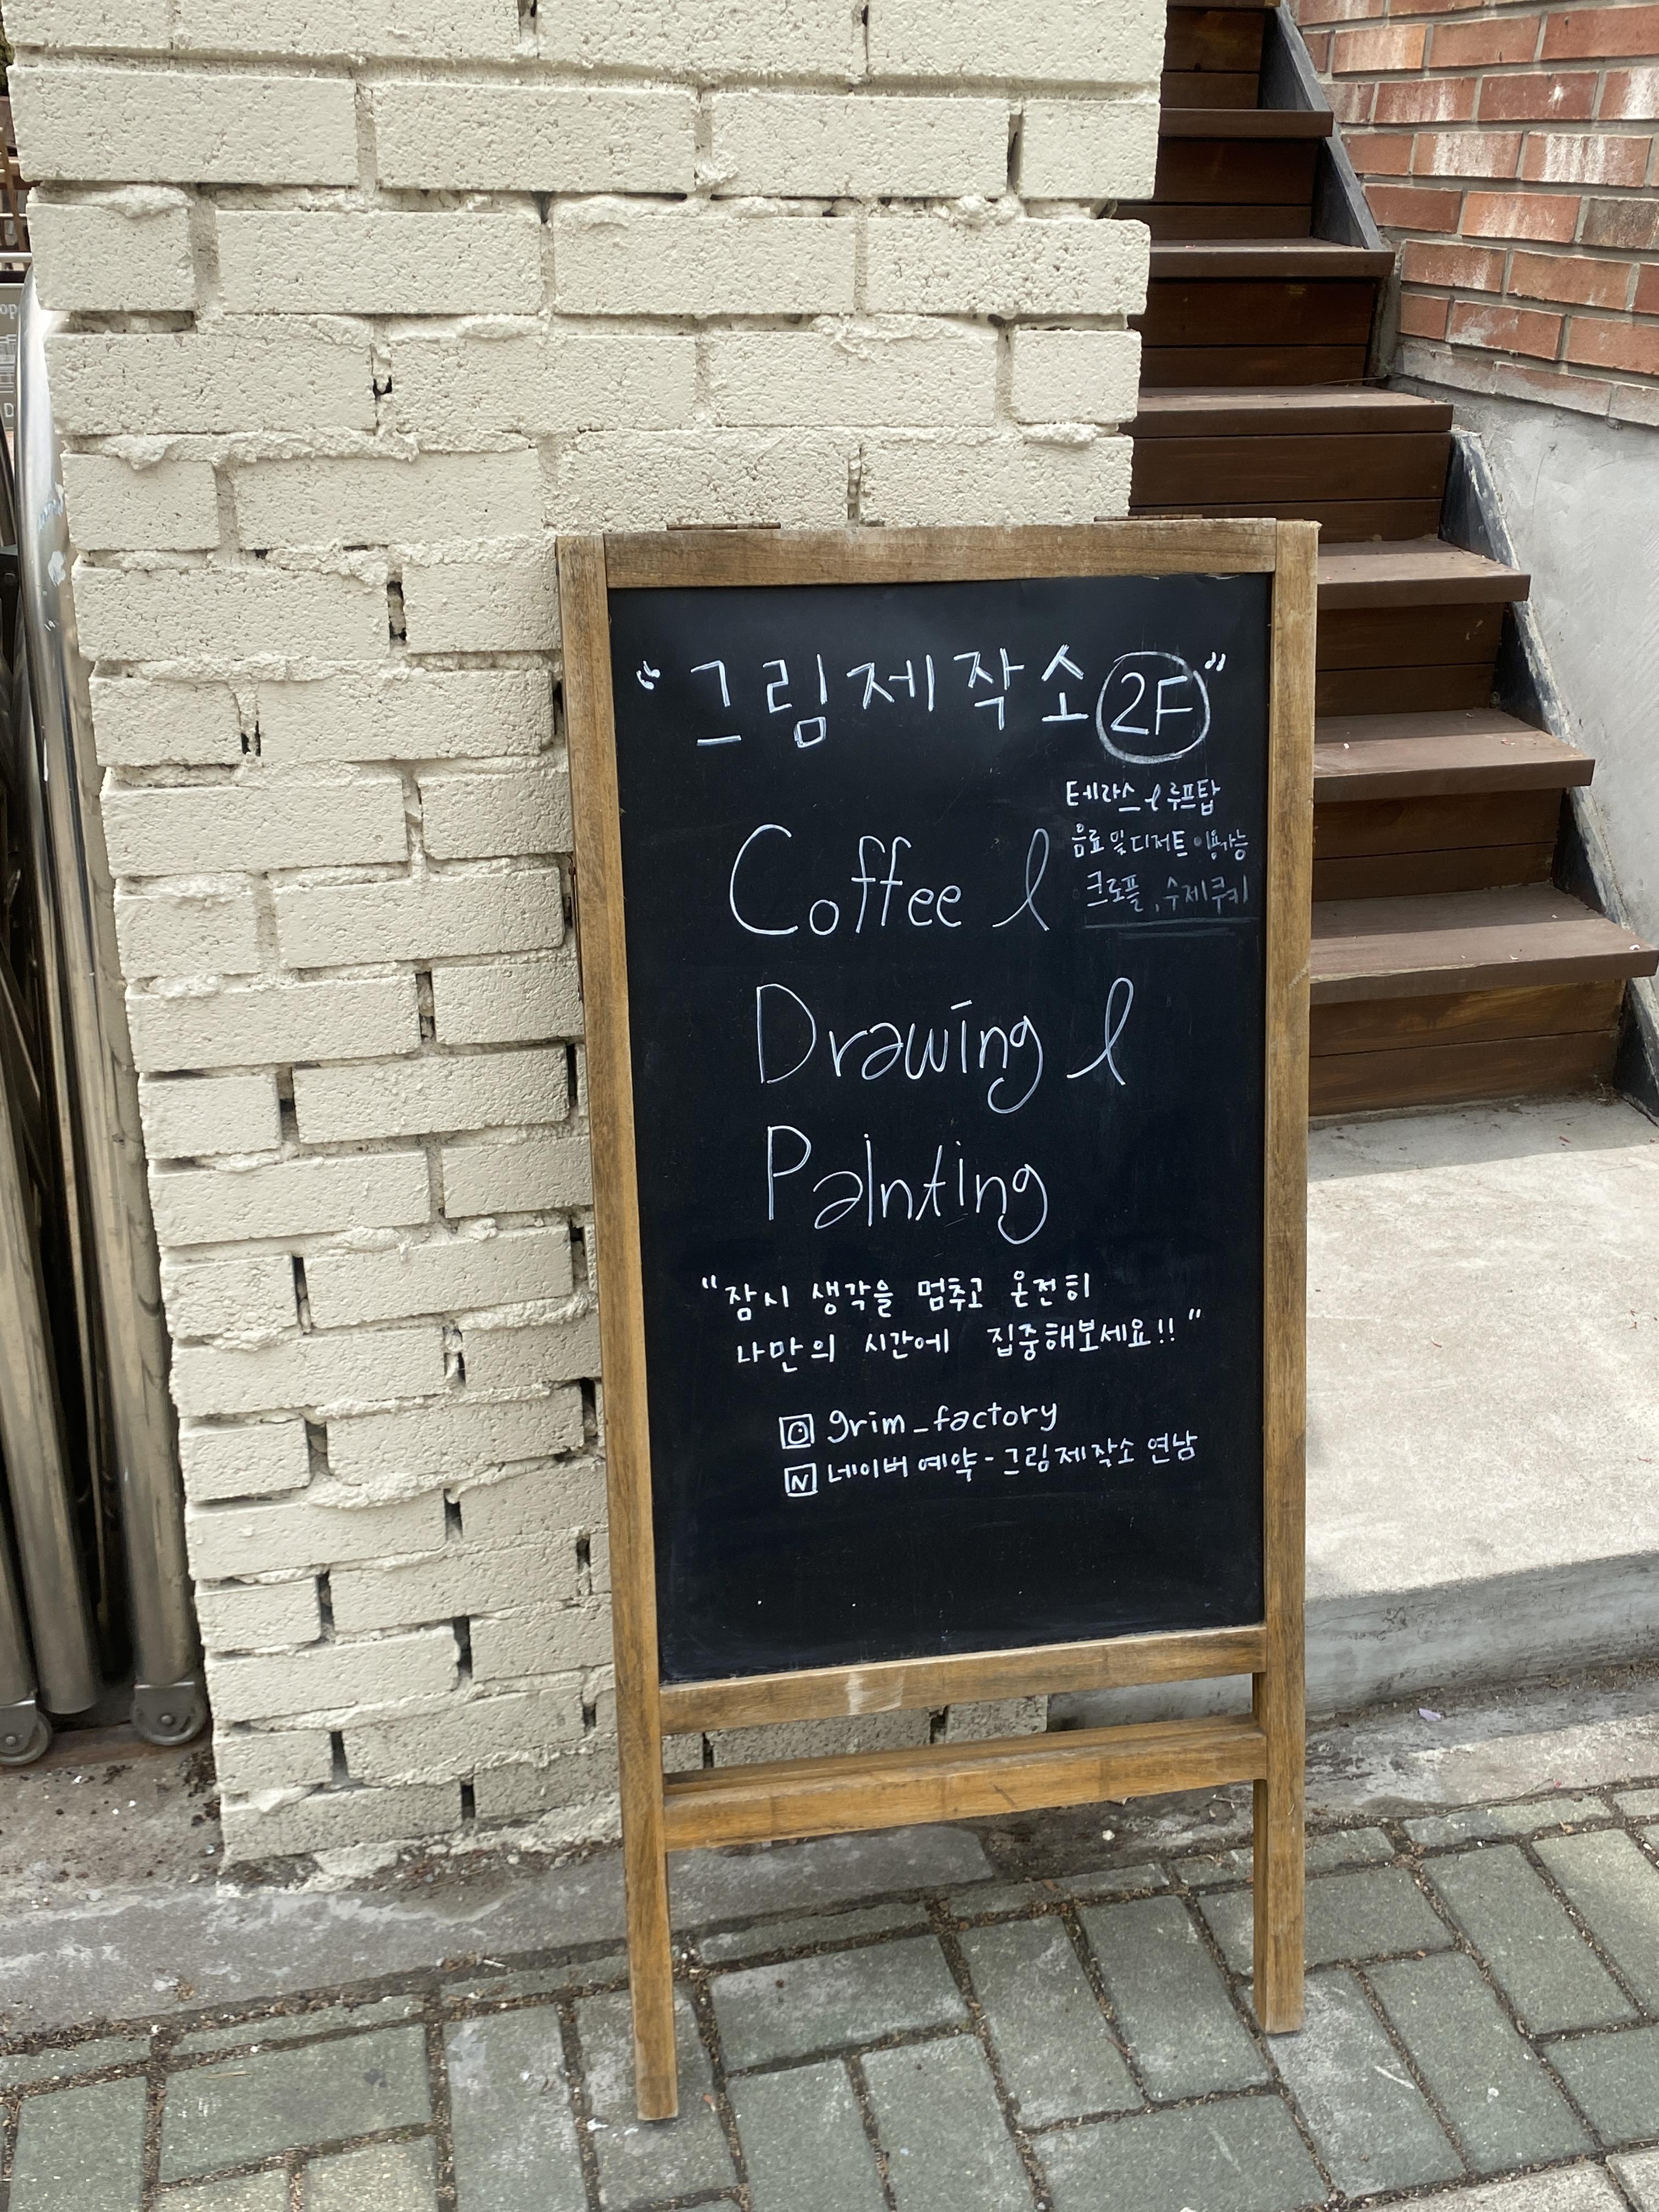 “그림제작소 2F”
테라스 & 루프탑
음료 및 디저트 이용가능
크로플, 수제쿠키
Coffee &
Drawing &
Painting
“잠시 생각을 멈추고 온전히
나만의 시간에 집중해보세요!!”
grim_factory
N 네이버 예약 - 그림제작소 연남